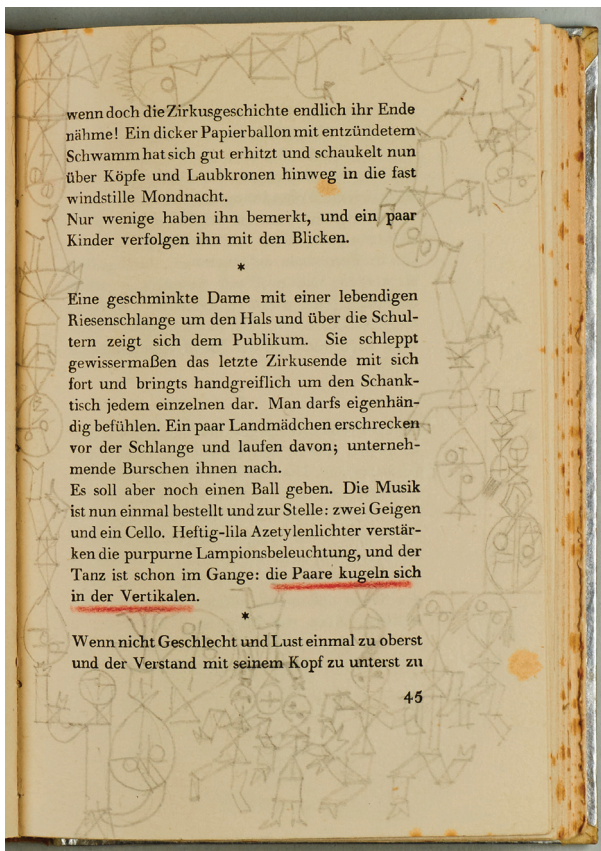 wenn doch die Zirkusgeschichte endlich ihr Ende
nähme! Ein dicker Papierballon mit entzündetem
Schwamm hat sich gut erhitzt und schaukelt nun
über Köpfe und Laubkronen hinweg in die fast
windstille Mondnacht.
Nur wenige haben ihn bemerkt, und ein paar
Kinder verfolgen ihn mit den Blicken.
*
Eine geschminkte Dame mit einer lebendigen
Riesenschlange um den Hals und über die Schul-
tern zeigt sich dem Publikum. Sie schleppt
gewissermaßen das letzte Zirkusende mit sich
fort und bringts handgreiflich um den Schank-
tisch jedem einzelnen dar. Man darfs eigenhän-
dig befühlen. Ein paar Landmädchen erschrecken
vor der Schlange und laufen davon; unterneh-
mende Burschen ihnen nach.
Es soll aber noch einen Ball geben. Die Musik
ist nun einmal bestellt und zur Stelle: zwei Geigen
und ein Cello. Heftig-lila Azetylenlichter verstär-
ken die purpurne Lampionsbeleuchtung, und der
Tanz ist schon im Gange: die Paare kugeln sich
in der Vertikalen.
*
Wenn nicht Geschlecht und Lust einmal zu oberst
und der Verstand mit seinem Kopf zu unterst zu
45